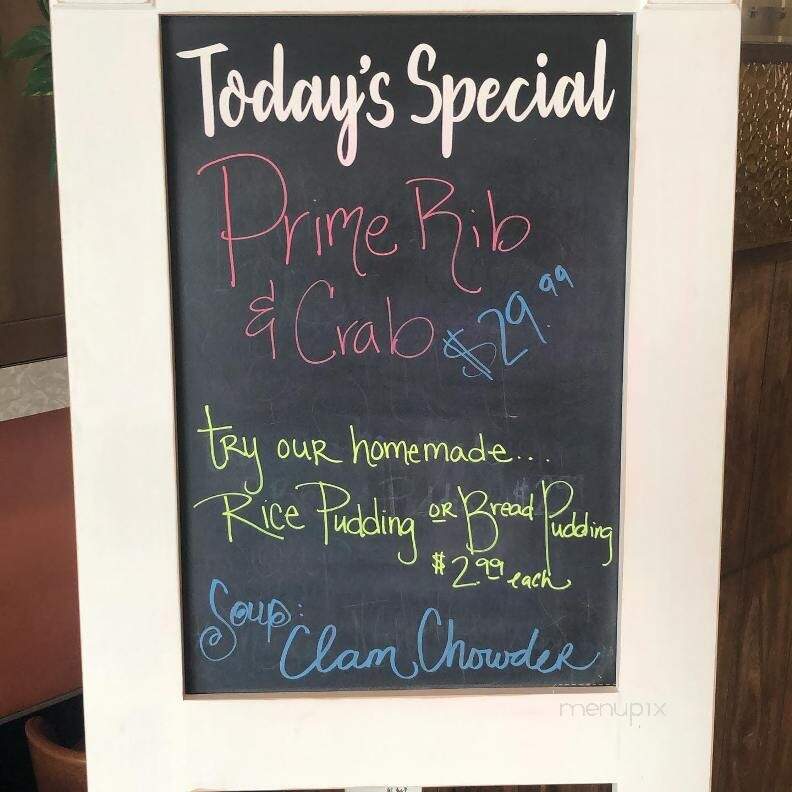 Today's Special
Prime Rib
& Crab $29.99
try our homemade...
Rice Pudding or Bread Pudding
$2.99 each
Soup:
Clam Chowder
menupix